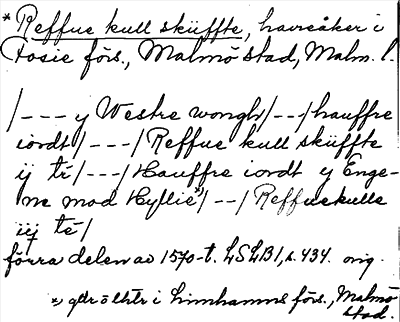 * Reffue kull sküffte, havreåker i
Fosie förs., Malmö stad, Malm. l.
/--- y Westre wongh/--/hauffre
iordt/---/Reffue kull sküffte
ij té/---/Hauffre iordt y Enge-
ne mod Hyllie*)/--/Reffuekulle
iij té/
förra delen av 1570-t. LSLB1, s. 434. orig.
*) i Limhamns förs., Malmö
stad.